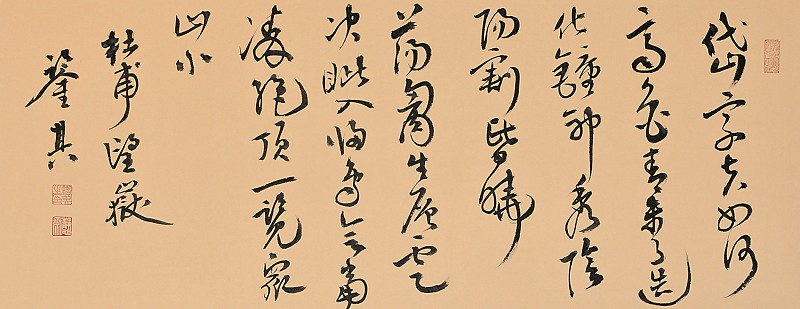 岱宗夫如何
齊魯青未了造
化鍾神秀陰
陽割昏曉
蕩胸生層雲
決眥入歸鳥會當
凌絕頂一覽眾
山小
杜甫望嶽
其